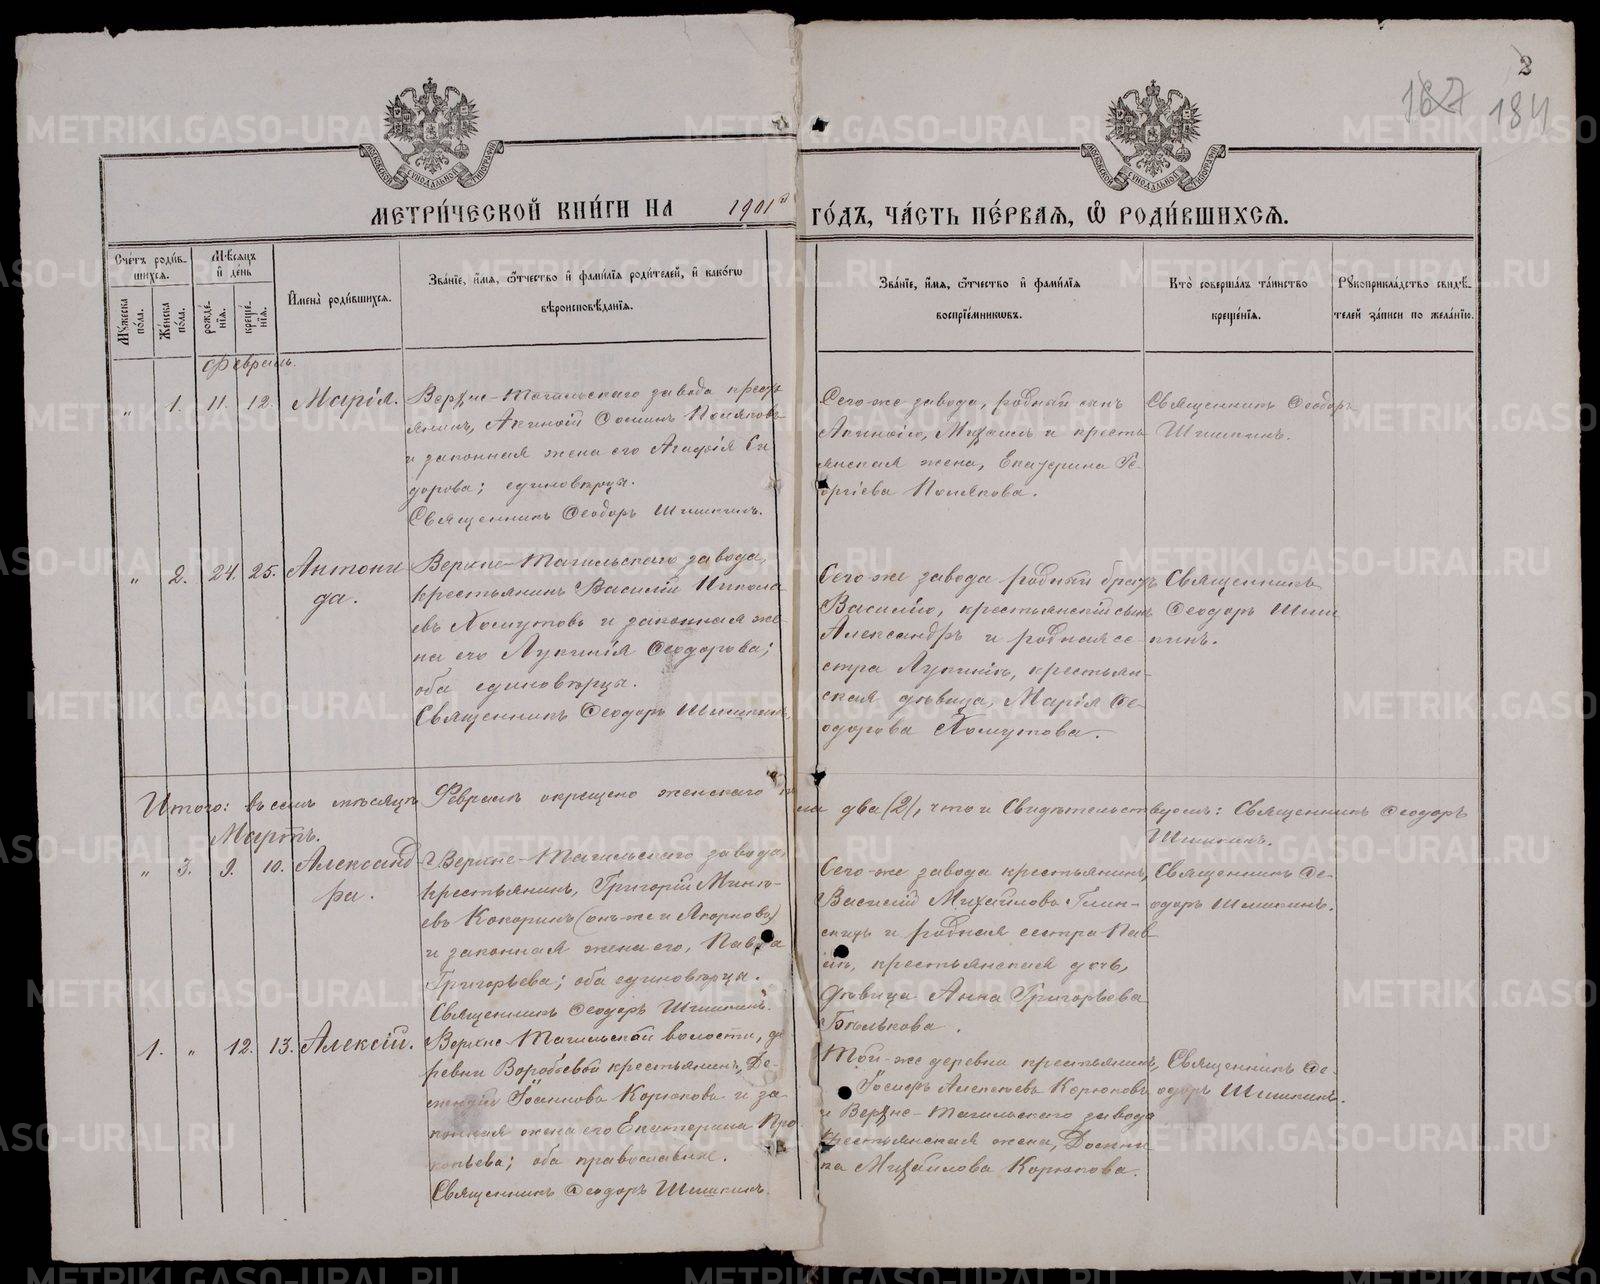 2
187 184
МЕТРИ́ЧЕСКОЙ КНИ́ГИ НА 1901й ГО́ДЪ, ЧА́СТЬ ПЕ́РВАѦ, Ѽ РОДИ́ВШИХСѦ.
Сче́тъ роди́в-
шихсѧ.
Мꙋ́жеска по́ла.
Же́нска по́ла.
Мѣ́сѧцъ
и҆ де́нь
рожде́-
нїѧ.
креще́-
нїѧ.
И҆мена̀ роди́вшихсѧ.
Зва́нїе, и҆́мѧ, ѻ҆́тчество и҆ фами́лїѧ роди́телей, и҆ како́гѡ
вѣроисповѣ́данїѧ.
Зва́нїе, и҆́мѧ, ѻ҆́тчество и҆ фами́лїѧ
воспрїе́мникѡвъ.
Кто̀ соверша́лъ та́инство
креще́нїѧ.
Рꙋкоприкла́дство свидѣ́-
телей за́писи по жела́нїю.
Февраль.
" 1. 11. 12. Марія.
Верхне-Тагильскаго завода кресть
янинъ,
и законная жена его Агафія Си
дорова; единовѣрцы.
Священникъ Ѳеодоръ Шишкинъ.
Сего-же завода, родный сынъ
Михаилъ и кресть
янская жена, Екатерина Ге
оргіева Полякова.
Священникъ Ѳеодоръ
Шишкинъ.
" 2. 24. 25. Антони
да.
Верхне-Тагильскаго завода,
крестьянинъ Василій Никола
евъ Хомутовъ и законная же-
на его Лукинія Ѳеодорова;
оба единовѣрцы.
Священникъ Ѳеодоръ Шишкинъ.
Сего-же завода родный братъ
Василію, крестьянскій сынъ
Александръ и родная се-
стра Лукиніи, крестьян-
ская дѣвица, Марія Ѳе-
одорова Хомутова.
Священникъ
Ѳеодоръ Шиш
кинъ.
Итого: въ семъ мѣсяцѣ Февралѣ окрещено женскаго пола два (2), что и свидѣтельствуемъ: Священникъ Ѳеодоръ
Шишкинъ.
Мартъ.
" 3. 9. 10. Александ
ра.
Верхне-Тагильскаго завода,
крестьянинъ, Григорій Минѣ-
евъ Кокоринъ (онъ-же и
и законная жена его, Павла
Григорьева; оба единовѣрцы.
Священникъ Ѳеодоръ Шишкинъ.
Сего-же завода крестьянинъ,
Василій Михайловъ Глин-
скихъ и родная сестра Пав
лѣ, крестьянская дочь,
дѣвица Анна Григорьева
Бѣлькова.
Священникъ Ѳе-
одоръ Шишкинъ.
1. " 12. 13. Алексій.
Верхне-Тагильской волости, де
ревни Воробьевой крестьянинъ,
Іоанновъ Корюковъ и за-
конная жена его Екатерина Про
копьева; оба православные.
Священникъ Ѳеодоръ Шишкинъ.
Той-же деревни крестьянинъ,
Іосифъ Алексѣевъ Корюковъ
и Верхне-Тагильскаго завода
крестьянская жена, Домни
ка Михайлова Корюкова.
Священникъ Ѳе-
одоръ Шишкинъ.
METRIKI.GASO-URAL.RU